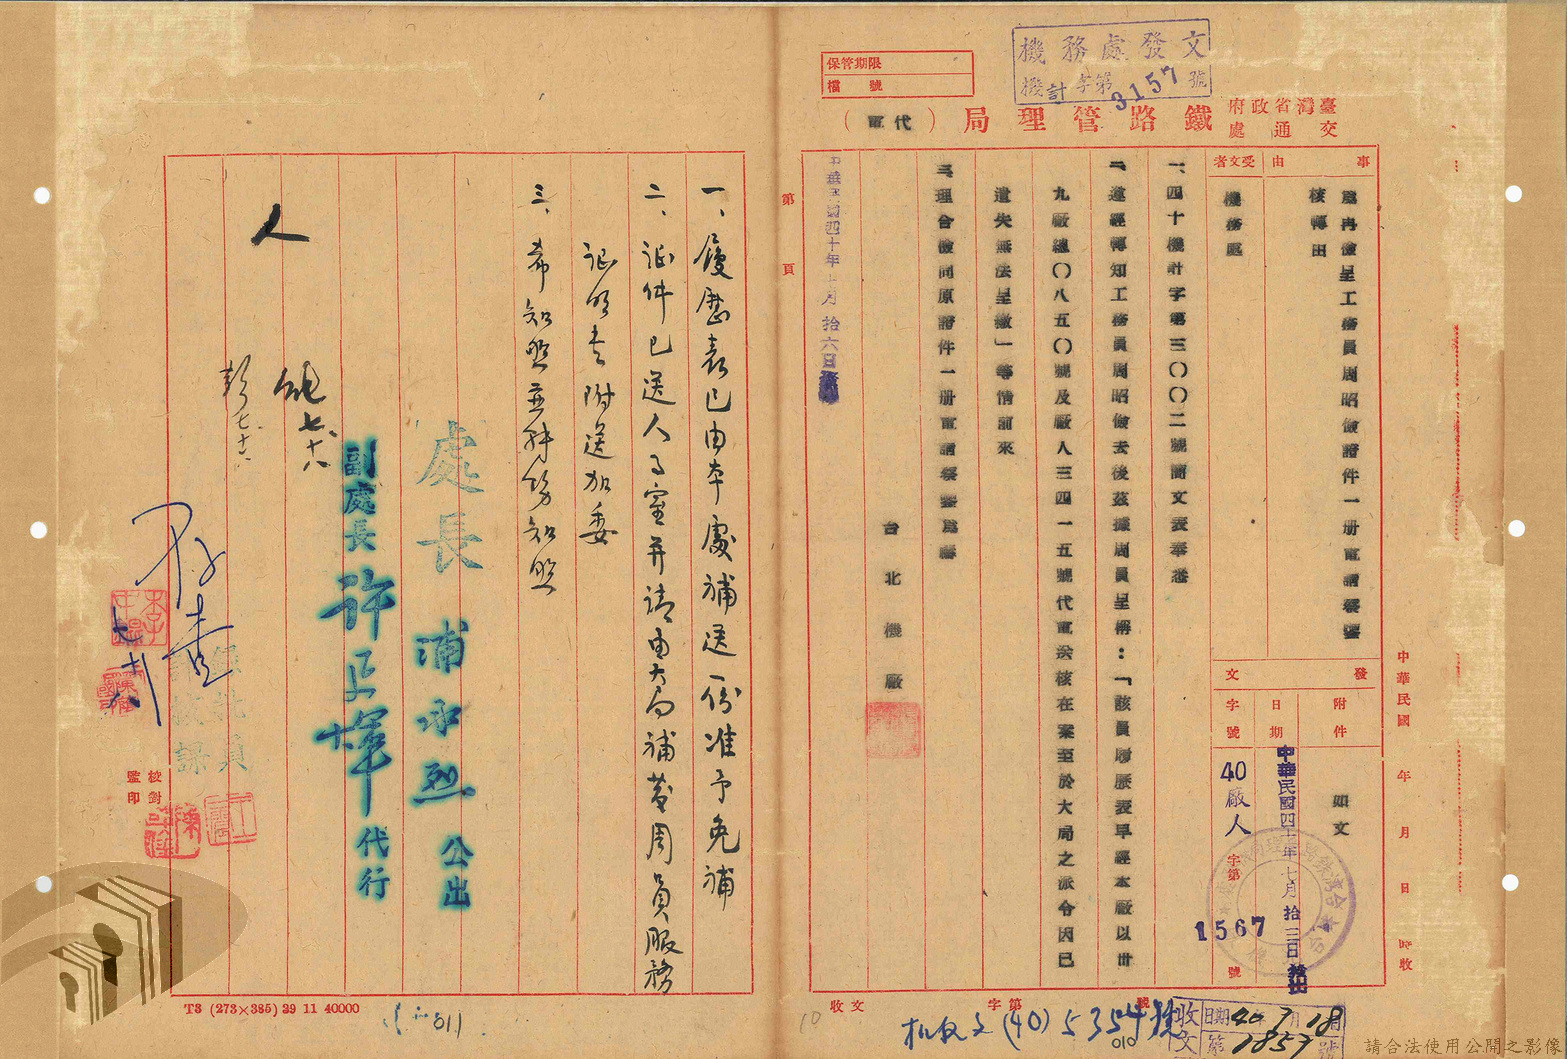 機務處發文
機計字第3157號
保管期限
檔號
臺灣省政府
交通處
鐵路管理局
(代電)
事由
受文者
為再檢呈工務員周昭儉證件一册電請察鑒
核轉由
機務處
發文
附件
如文
日期
中華民國四十年七月拾三日
字號
40廠人字第1567號
中華民國 年 月 日 時收
一、四十機計字第三〇〇二號箇文表奉悉
二、遵經轉知工務員周昭儉去後茲據周員呈稱:「該員履歷表早經本廠以卅
九廠總〇八五〇號及廠人三四一五號代電送核在案至於大局之派令因已
遺失無法呈繳」等情前來
三、理合檢同原證件一册電請察鑒為禱
台北機廠
中華民國四十年七月拾六日
收文 字第 號
机收文(40)5354號
010
收文
日期 40 7月18日
第1857號
第 頁
一、履歷表已由本處補送一份准予免補
二、証件已送人事室并請由大局補發周員服務
証明書附送加委
三、希知照並轉飭知照
處長 浦永烈 公出
副處長 許正墀 代行
人
七、十八
彭七、十六
核對
監印
T3 (273×385) 39 11 40000
011
10
請合法使用公開之影像